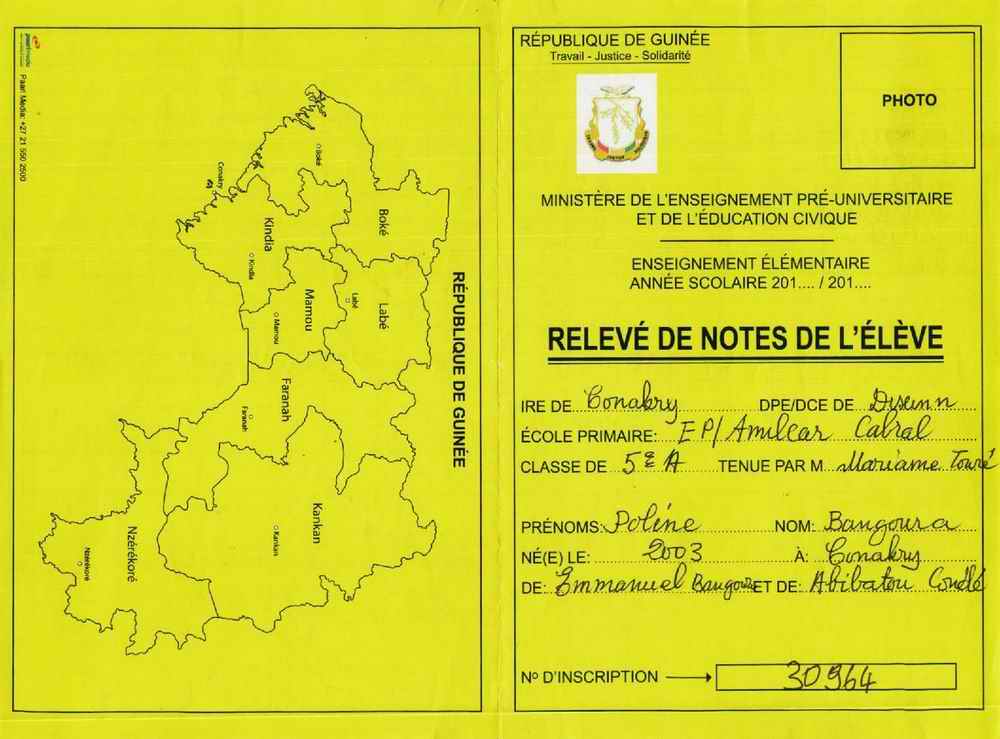 paarlmedia
Paarl Media: +27 21 550 2500
RÉPUBLIQUE DE GUINÉE
Boké
Boké
Conakry
Kindia
Kindia
Labé
Labé
Mamou
Mamou
Faranah
Faranah
Kankan
Kankan
Nzérékoré
Nzérékoré
RÉPUBLIQUE DE GUINÉE
Travail - Justice - Solidarité
PHOTO
MINISTÈRE DE L'ENSEIGNEMENT PRÉ-UNIVERSITAIRE
ET DE L'ÉDUCATION CIVIQUE
ENSEIGNEMENT ÉLÉMENTAIRE
ANNÉE SCOLAIRE 201.... / 201....
RELEVÉ DE NOTES DE L'ÉLÈVE
IRE DE Conakry DPE/DCE DE Dixinn
ÉCOLE PRIMAIRE: EP/ Amilcar Cabral
CLASSE DE 5è A TENUE PAR M Mariame Touré
PRÉNOMS: Polène NOM: Bangoura
NÉ(E) LE: 2003 À: Conakry
DE: Emmanuel Bangoura ET DE: Abibatou Condé
Nº D'INSCRIPTION 30964